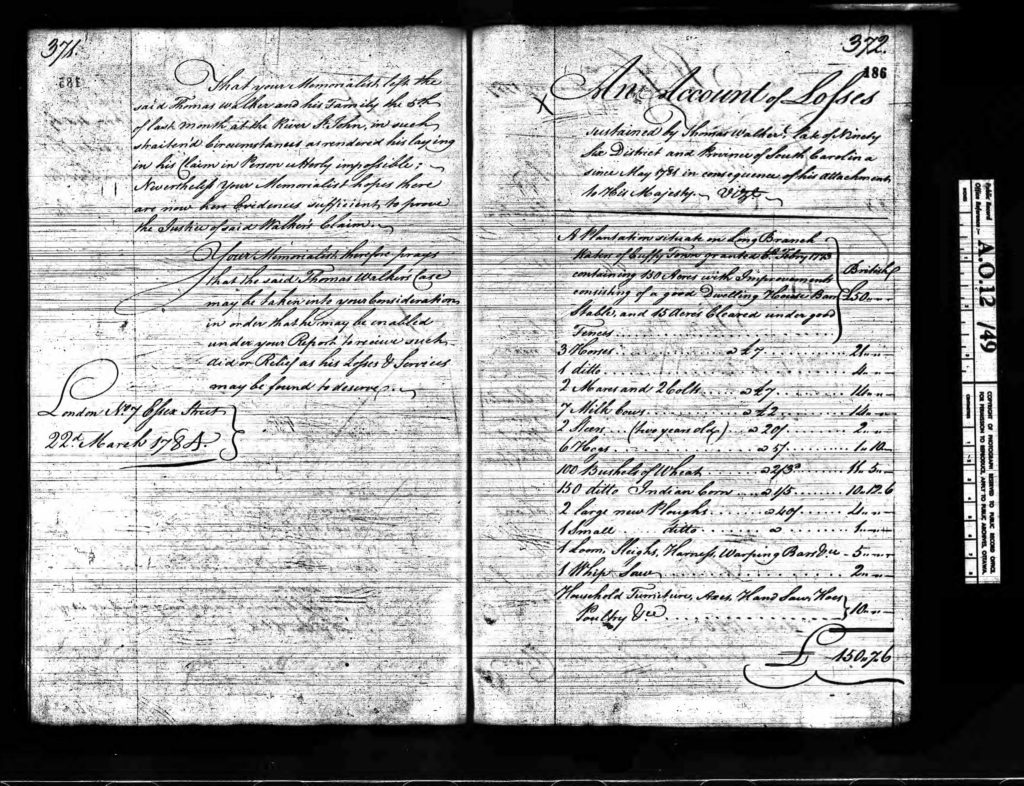 371.
185
That your Memorialist left the
said Thomas Walker and his Family the 5th
of last Month at the River St. John, in such
straiten'd Circumstances as rendered his laying
in his Claim in Person utterly impossible;
Nevertheless Your Memorialist hopes there
are now here Evidences sufficient to prove
the Justice of said Walker's Claim.
Your Memorialist therefore prays
that the said Thomas Walker's Case
may be taken into your Consideration
in order that he may be enabled
under your Report to receive such
Aid or Relief as his Losses & Services
may be found to deserve.
London No. 7 Essex Street
22d. March 1784.
372.
186
X An Account of Losses
sustained by Thomas Walker late of Ninety
Six District and Province of South Carolina
since May 1781 in consequence of his attachment
to His Majesty. Vizt.
A Plantation situate on Long Branch
Waters of Cuffy Town granted Febry 1773
containing 150 Acres with Improvements British £
consisting of a good Dwelling House Barn £50 „ „
Stable, and 15 Acres Cleared under good
Fences
3 Horses a £7 21 „ „
1 ditto 4 „ „
2 Mares and 2 Colts a £7 14 „ „
7 Milk Cows a £2 14 „ „
2 Steers (two years old) a 20/ 2 „ „
6 Hogs a 5/ 1 „ 10 „
100 Bushels of Wheat a 2/3d 11 „ 5 „
150 ditto Indian Corn a 1/5 10 „ 12 „ 6
2 large new Ploughs a 40/ 4 „ „
1 Small ditto a 1 „ „
1 Loom, Sleighs, Harness, Warping Bars &c 5 „ „
1 Whip Saw 2 „ „
Household Furniture, Axes, Hand Saw, Hoes
Poultry &c 10 „ „
£ 150 „ 7 „ 6
Public Record
Office Reference:-
A.O.12 / 49
COPYRIGHT OF PHOTOGRAPH RESERVED TO PUBLIC RECORD OFFICE.
FOR PERMISSION TO REPRODUCE, APPLY TO PUBLIC ARCHIVES, OTTAWA.